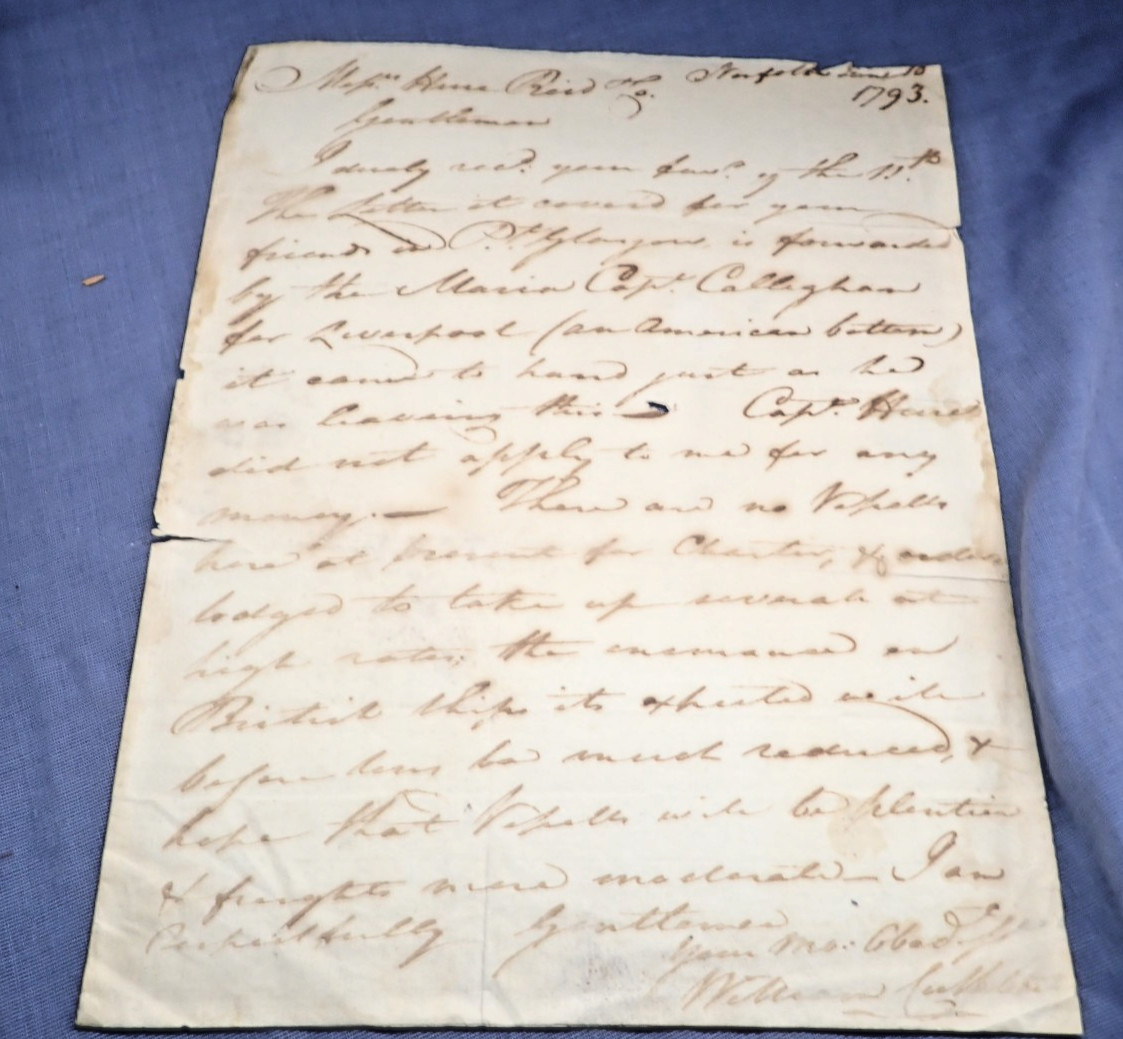 Mess.rs Reid & Co. Norfolk June 18
1793.
Gentlemen
I duly rec.d your fav.r of the 13.th
The Letter it cover'd for your
friends in P.t Glasgow is forwarded
by the Maria Cap.t Calleghan
for Liverpool (an American bottom)
it came to hand just as he
was leaving this — Cap.t
did not apply to me for any
money. — There are no Vessells
here at present for Charter, & orders
lodged to take up severale at
high rates; the insurance on
British Ships its expected will
before long be much reduced, &
hope that Vessells will be plentier
& freights more moderate — I am
Respectfully Gentlemen
Your Mo: Obed.t
William